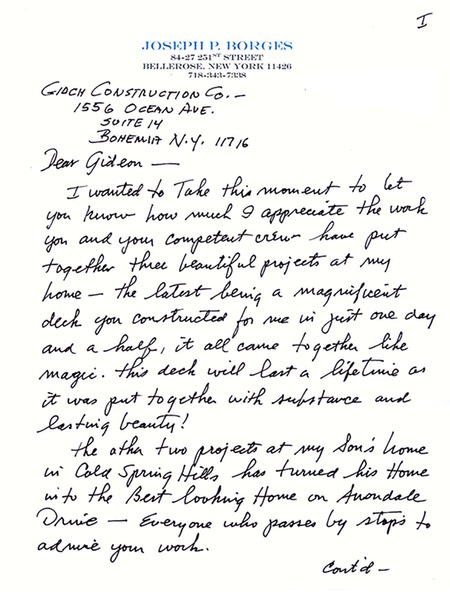 I
JOSEPH P. BORGES
84-27 251ST STREET
BELLEROSE, NEW YORK 11426
718-343-7338
GIDCH CONSTRUCTION CO. —
1556 OCEAN AVE.
SUITE 14
BOHEMIA N.Y. 11716
Dear Gideon —
I wanted to Take this moment to let
you know how much I appreciate the work
you and your competent crew have put
together three beautiful projects at my
home — the latest being a magnificent
deck you constructed for me in just one day
and a half, it all came together like
magic. this deck will last a lifetime as
it was put together with substance and
lasting beauty!
the other two projects at my Son's home
in Cold Spring Hills has turned his Home
into the Best looking Home on Avondale
Drive — Everyone who passes by stops to
admire your work.
Cont'd —